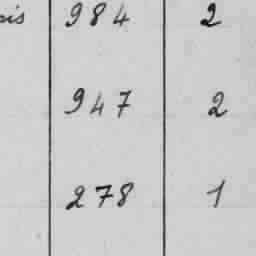 984 2
947 2
278 1